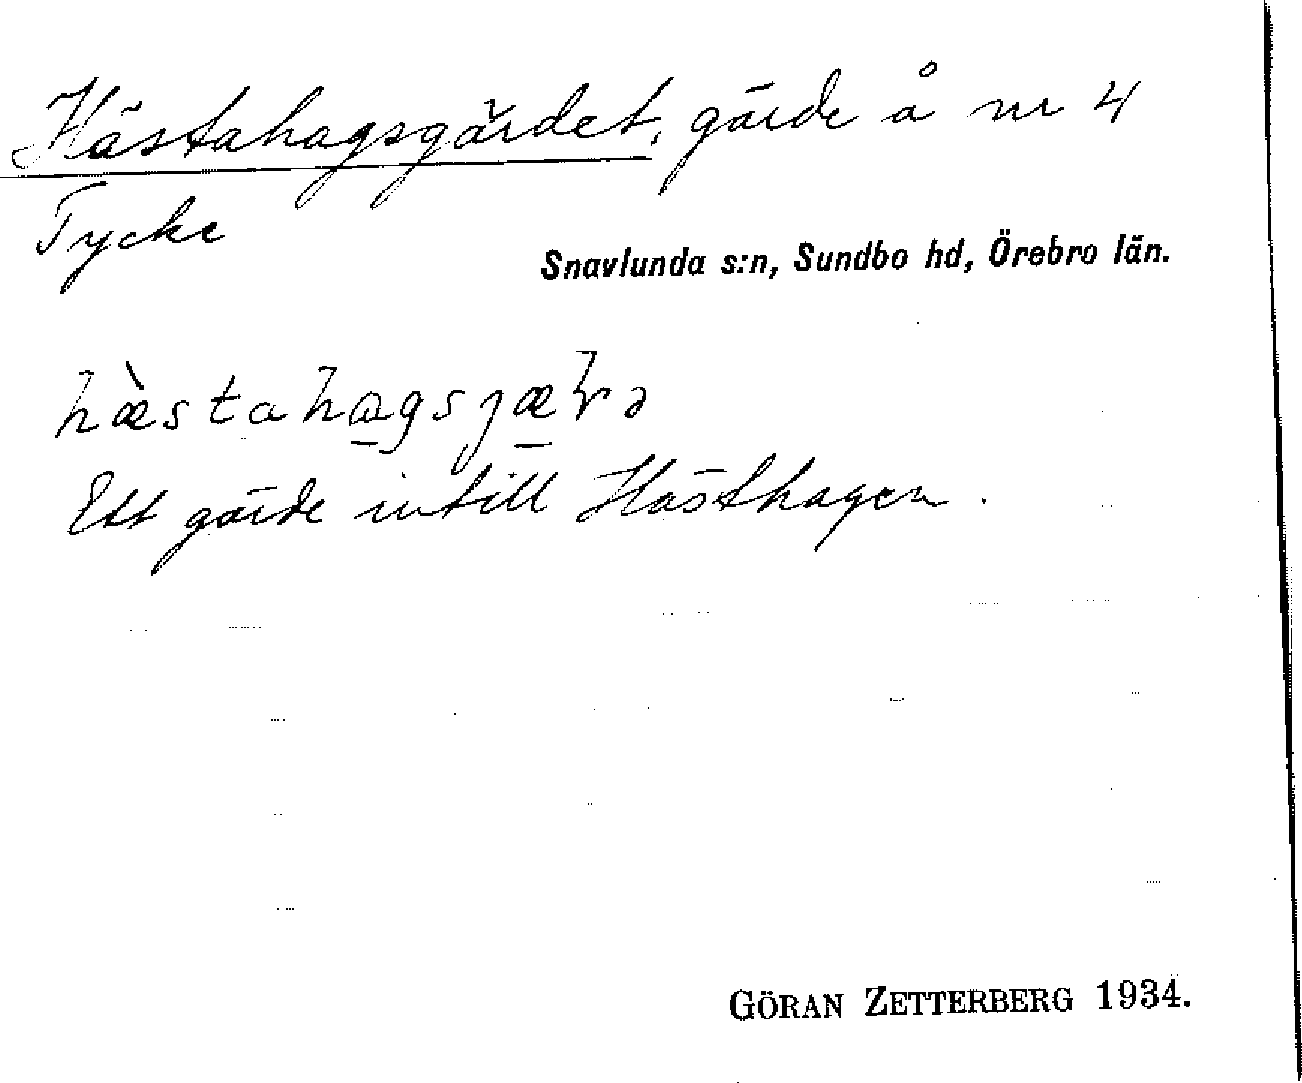 Hästahagsgärdet, gärde å nr 4
Tycke
Snavlunda s:n, Sundbo hd, Örebro län.
hæ̀stahagsjæɽə
Ett gärde intill Hästhagen.
GÖRAN ZETTERBERG 1934.